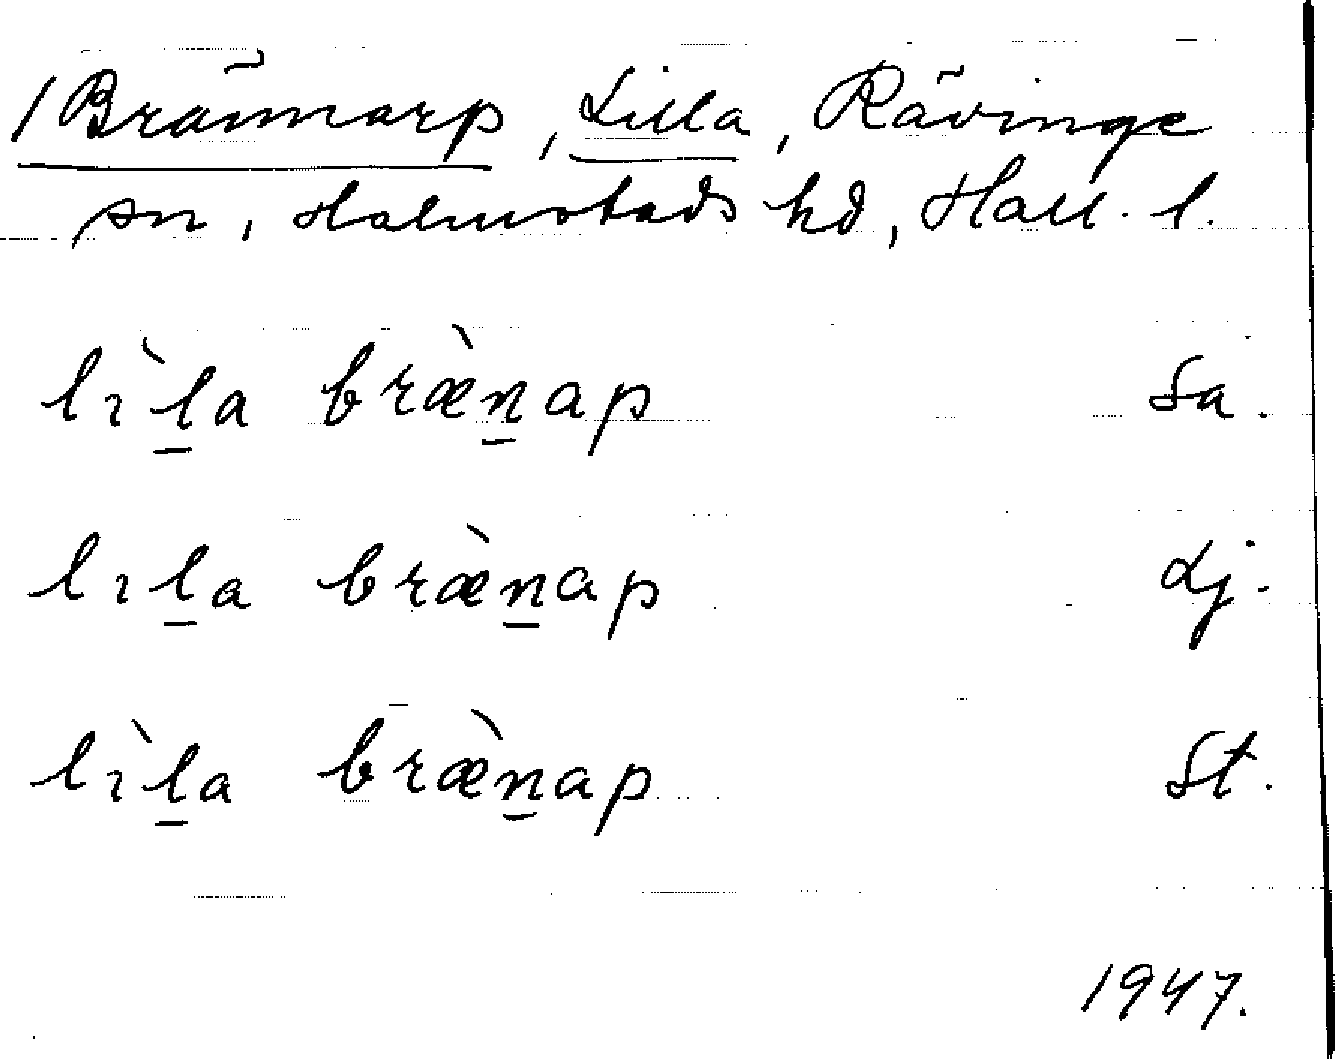 /Brännarp, Lilla, Rävinge
sn, Halmstads hd, Hall. l.
lı̀l̲a bræ̀n̲ap Sa.
lıl̲a bræ̀n̲ap Lj.
lı̀l̲a bræ̀n̲ap St.
1947.